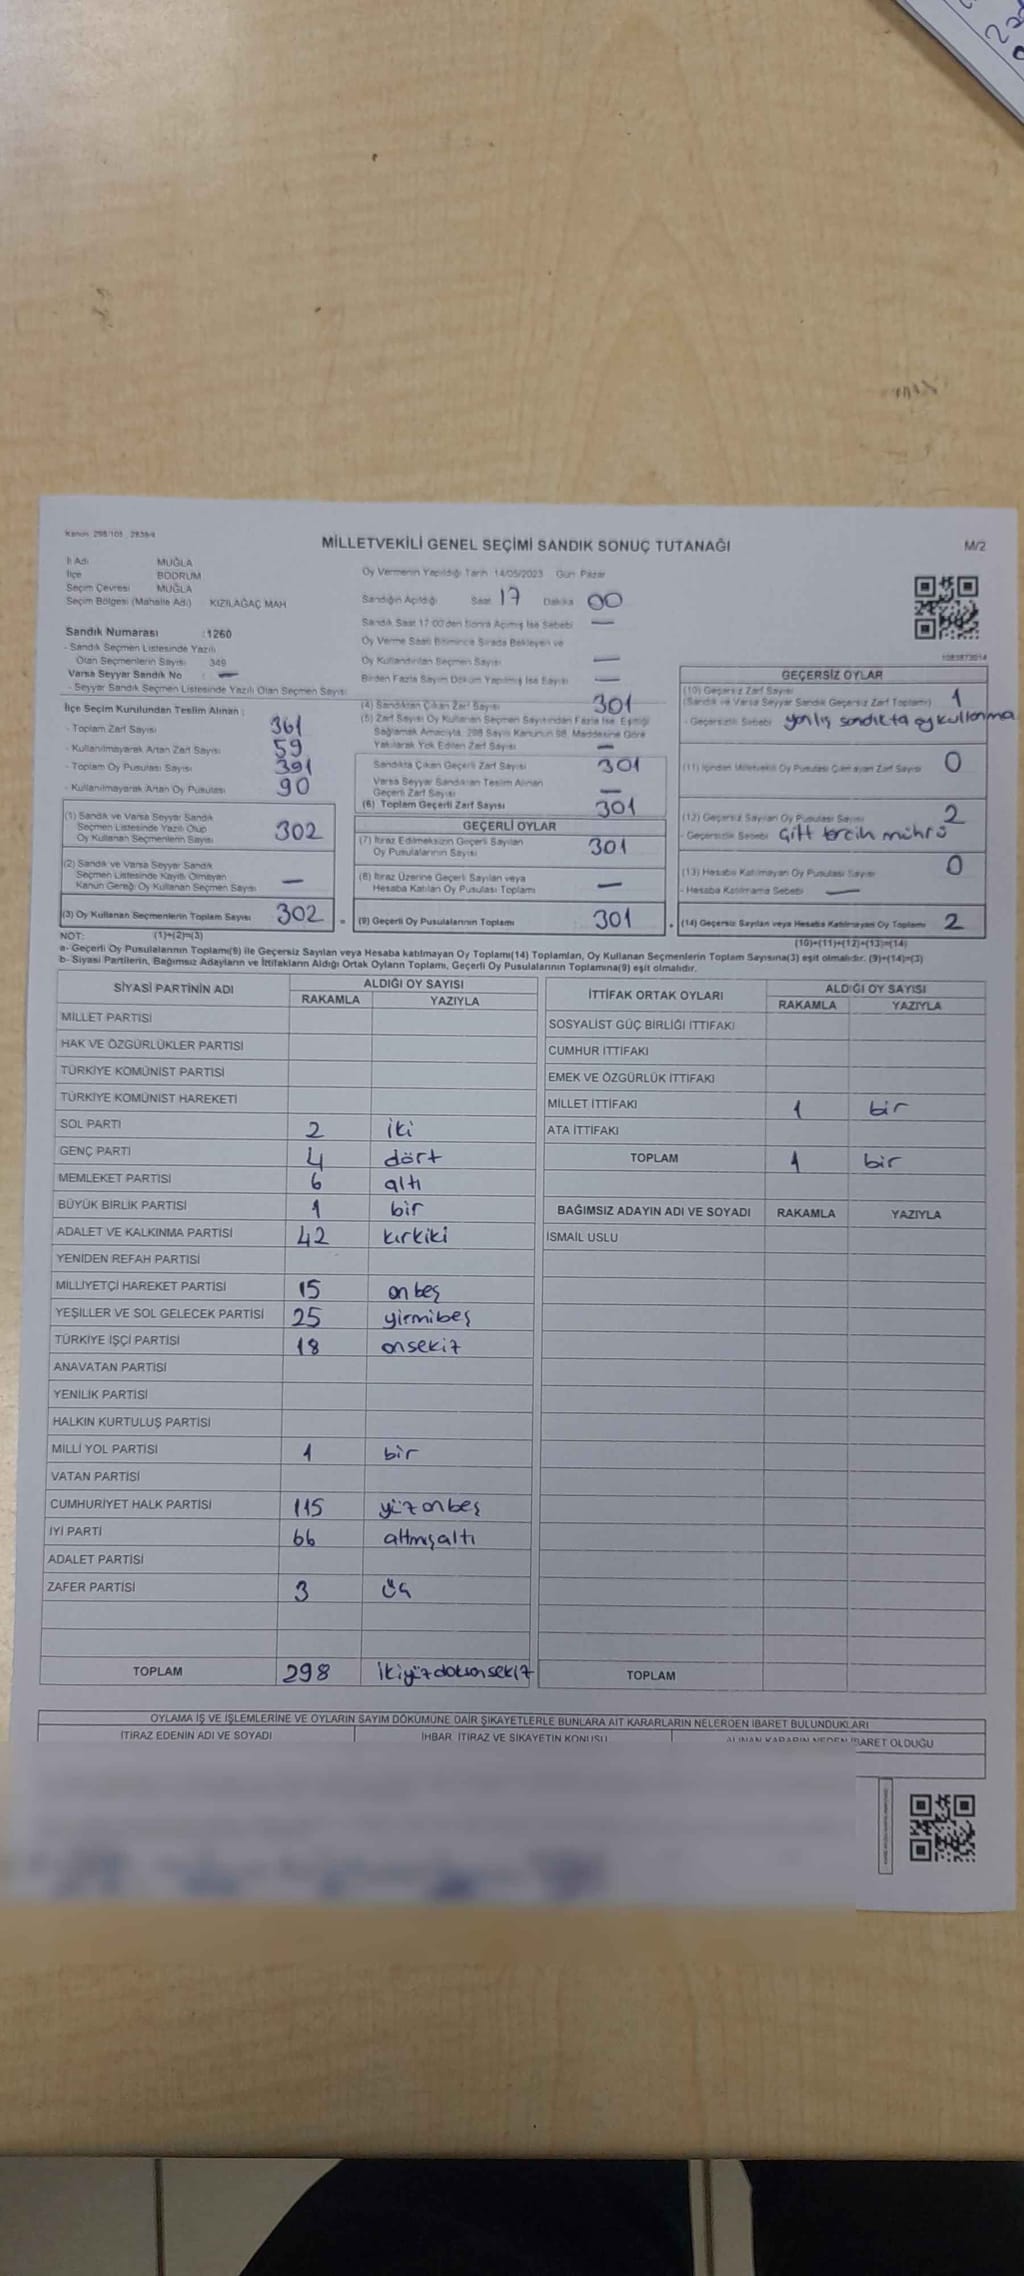 Kanun 298/105 , 2839/4
MİLLETVEKİLİ GENEL SEÇİMİ SANDIK SONUÇ TUTANAĞI
M/2
İl Adı MUĞLA
İlçe BODRUM
Seçim Çevresi MUĞLA
Seçim Bölgesi (Mahalle Adı.) KIZILAĞAÇ MAH
Sandık Numarası :1260
- Sandık Seçmen Listesinde Yazılı
Olan Seçmenlerin Sayısı 349
Varsa Seyyar Sandık No : —
- Seyyar Sandık Seçmen Listesinde Yazılı Olan Seçmen Sayısı
Oy Vermenin Yapıldığı Tarih 14/05/2023 Gün Pazar
Sandığın Açıldığı Saat 17 Dakika 00
Sandık Saat 17:00'den Sonra Açılmış İse Sebebi —
Oy Verme Saati Bitiminde Sırada Bekleyen ve
Oy Kullandırılan Seçmen Sayısı —
Birden Fazla Sayım Döküm Yapılmış İse Sayısı —
1083873014
İlçe Seçim Kurulundan Teslim Alınan :
- Toplam Zarf Sayısı 361
- Kullanılmayarak Artan Zarf Sayısı 59
- Toplam Oy Pusulası Sayısı 391
- Kullanılmayarak Artan Oy Pusulası 90
(1) Sandık ve Varsa Seyyar Sandık
Seçmen Listesinde Yazılı Olup
Oy Kullanan Seçmenlerin Sayısı 302
(2) Sandık ve Varsa Seyyar Sandık
Seçmen Listesinde Kayıtlı Olmayan
Kanun Gereği Oy Kullanan Seçmen Sayısı —
(3) Oy Kullanan Seçmenlerin Toplam Sayısı 302
(4) Sandıktan Çıkan Zarf Sayısı 301
(5) Zarf Sayısı Oy Kullanan Seçmen Sayısından Fazla İse, Eşitliği
Sağlamak Amacıyla, 298 Sayılı Kanunun 98. Maddesine Göre
Yakılarak Yok Edilen Zarf Sayısı —
Sandıkta Çıkan Geçerli Zarf Sayısı 301
Varsa Seyyar Sandıktan Teslim Alınan
Geçerli Zarf Sayısı —
(6) Toplam Geçerli Zarf Sayısı 301
GEÇERLİ OYLAR
(7) İtiraz Edilmeksizin Geçerli Sayılan
Oy Pusulalarının Sayısı 301
(8) İtiraz Üzerine Geçerli Sayılan veya
Hesaba Katılan Oy Pusulası Toplamı —
(9) Geçerli Oy Pusulalarının Toplamı 301
GEÇERSİZ OYLAR
(10) Geçersiz Zarf Sayısı 1
(Sandık ve Varsa Seyyar Sandık Geçersiz Zarf Toplamı)
- Geçersizlik Sebebi yanlış sandıkta oy kullanma
(11) İçinden Milletvekili Oy Pusulası Çıkmayan Zarf Sayısı 0
(12) Geçersiz Sayılan Oy Pusulası Sayısı 2
- Geçersizlik Sebebi Çift tercih mührü
(13) Hesaba Katılmayan Oy Pusulası Sayısı 0
- Hesaba Katılmama Sebebi —
(14) Geçersiz Sayılan veya Hesaba Katılmayan Oy Toplamı 2
NOT: (1)+(2)=(3)
(10)+(11)+(12)+(13)=(14)
a- Geçerli Oy Pusulalarının Toplamı(9) ile Geçersiz Sayılan veya Hesaba katılmayan Oy Toplamı(14) Toplamları, Oy Kullanan Seçmenlerin Toplam Sayısına(3) eşit olmalıdır. (9)+(14)=(3)
b- Siyasi Partilerin, Bağımsız Adayların ve İttifakların Aldığı Ortak Oyların Toplamı, Geçerli Oy Pusulalarının Toplamına(9) eşit olmalıdır.
SİYASİ PARTİNİN ADI ALDIĞI OY SAYISI
RAKAMLA YAZIYLA
MİLLET PARTİSİ
HAK VE ÖZGÜRLÜKLER PARTİSİ
TÜRKİYE KOMÜNİST PARTİSİ
TÜRKİYE KOMÜNİST HAREKETİ
SOL PARTİ 2 iki
GENÇ PARTİ 4 dört
MEMLEKET PARTİSİ 6 altı
BÜYÜK BİRLİK PARTİSİ 1 bir
ADALET VE KALKINMA PARTİSİ 42 kırkiki
YENİDEN REFAH PARTİSİ
MİLLİYETÇİ HAREKET PARTİSİ 15 onbeş
YEŞİLLER VE SOL GELECEK PARTİSİ 25 yirmibeş
TÜRKİYE İŞÇİ PARTİSİ 18 onsekiz
ANAVATAN PARTİSİ
YENİLİK PARTİSİ
HALKIN KURTULUŞ PARTİSİ
MİLLİ YOL PARTİSİ 1 bir
VATAN PARTİSİ
CUMHURİYET HALK PARTİSİ 115 yüzonbeş
İYİ PARTİ 66 altmışaltı
ADALET PARTİSİ
ZAFER PARTİSİ 3 üç
TOPLAM 298 ikiyüzdoksansekiz
İTTİFAK ORTAK OYLARI ALDIĞI OY SAYISI
RAKAMLA YAZIYLA
SOSYALİST GÜÇ BİRLİĞİ İTTİFAKI
CUMHUR İTTİFAKI
EMEK VE ÖZGÜRLÜK İTTİFAKI
MİLLET İTTİFAKI 1 bir
ATA İTTİFAKI
TOPLAM 1 bir
BAĞIMSIZ ADAYIN ADI VE SOYADI RAKAMLA YAZIYLA
İSMAİL USLU
TOPLAM
OYLAMA İŞ VE İŞLEMLERİNE VE OYLARIN SAYIM DÖKÜMÜNE DAİR ŞİKAYETLERLE BUNLARA AİT KARARLARIN NELERDEN İBARET BULUNDUKLARI
İTİRAZ EDENİN ADI VE SOYADI İHBAR, İTİRAZ VE ŞİKAYETİN KONUSU ALINAN KARARIN NEDEN İBARET OLDUĞU